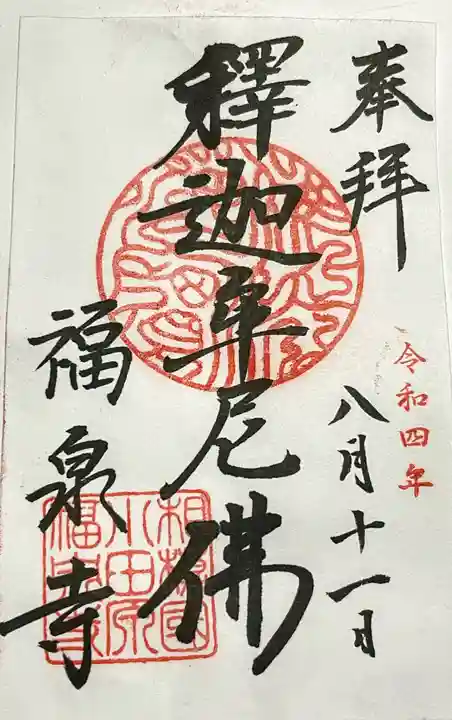 奉拝
令和四年
八月十一日
釋迦牟尼佛
福泉寺
相模國
小田原
福泉寺